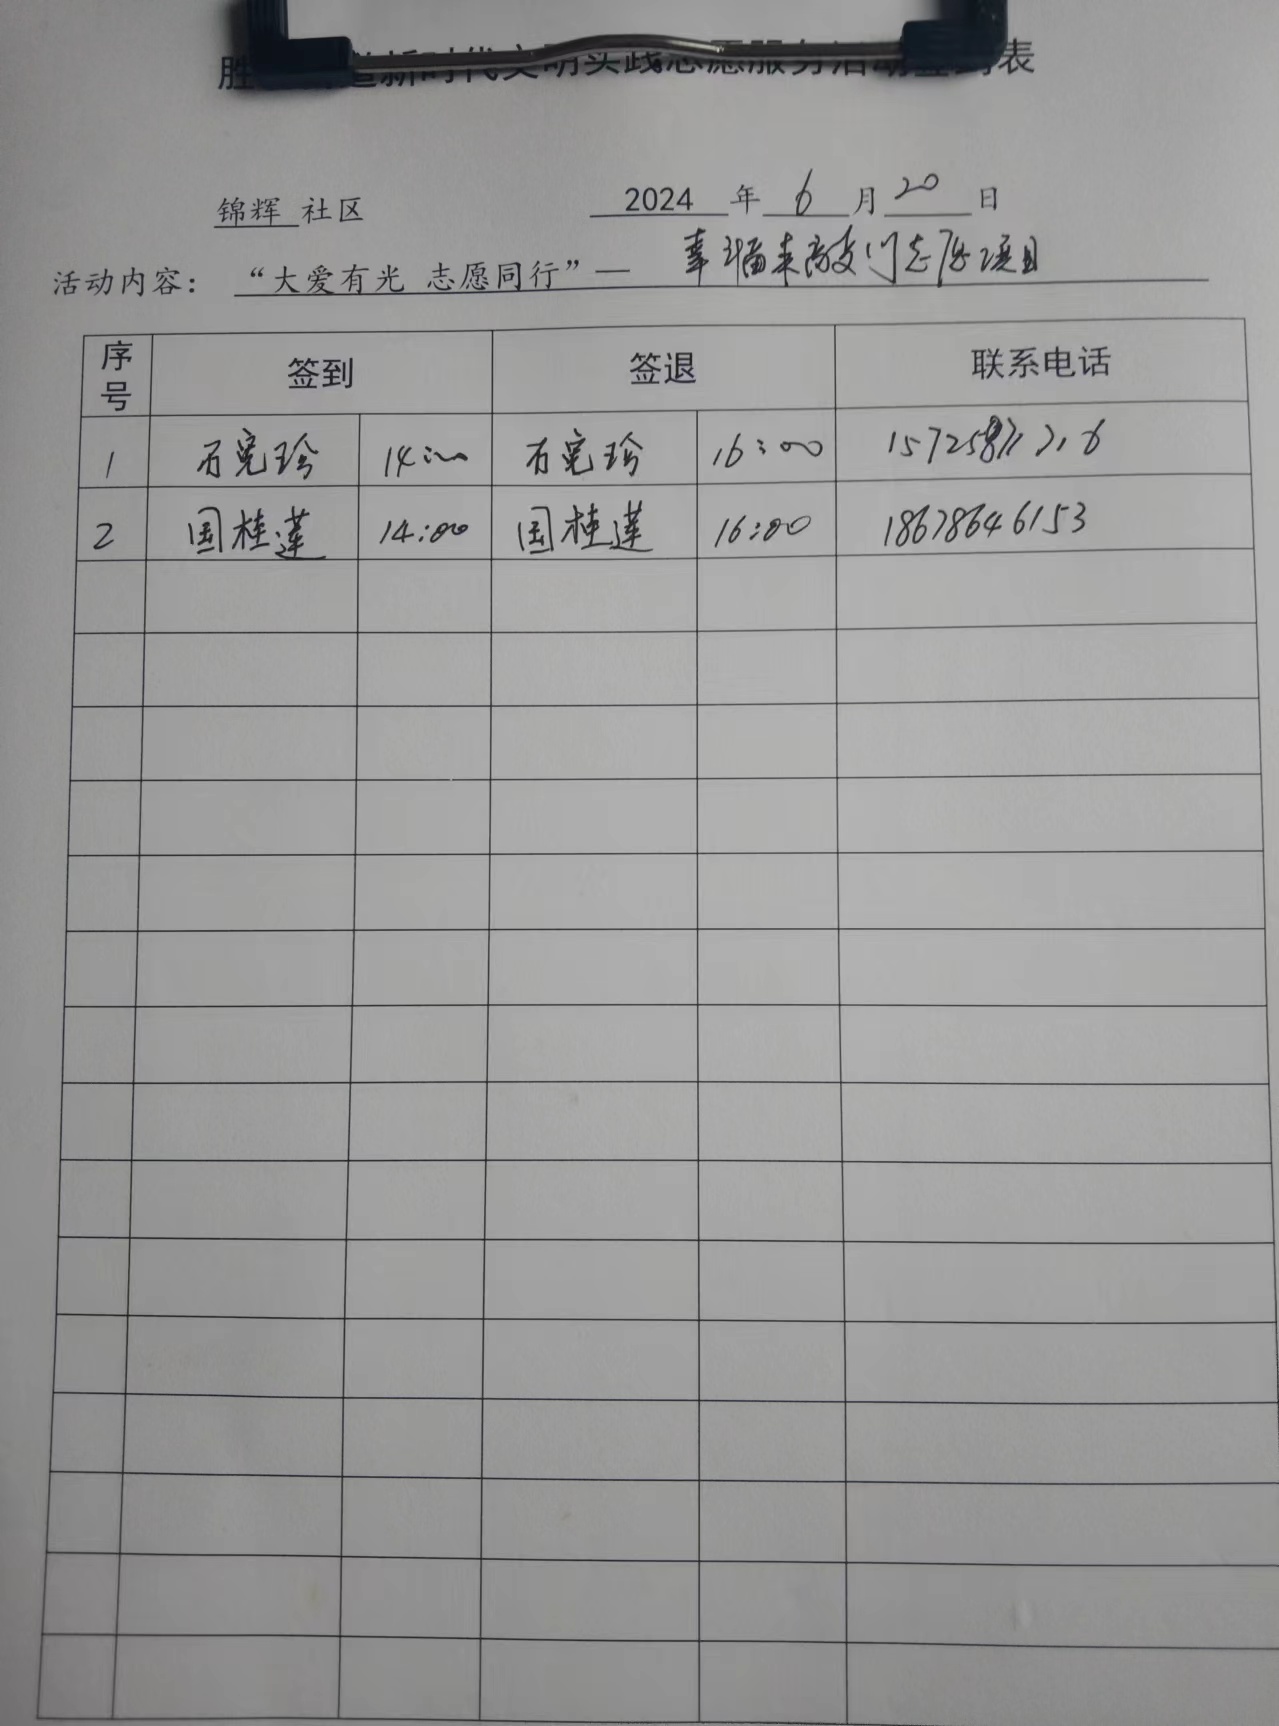 新时代文明实践志愿服务活动签到表
锦辉 社区 2024 年 6 月 20 日
活动内容： “大爱有光 志愿同行”— 幸福来敲门志愿项目
序号 签到 签退 联系电话
1 14:00 16:00
2 国桂莲 14:00 国桂莲 16:00 18678646153